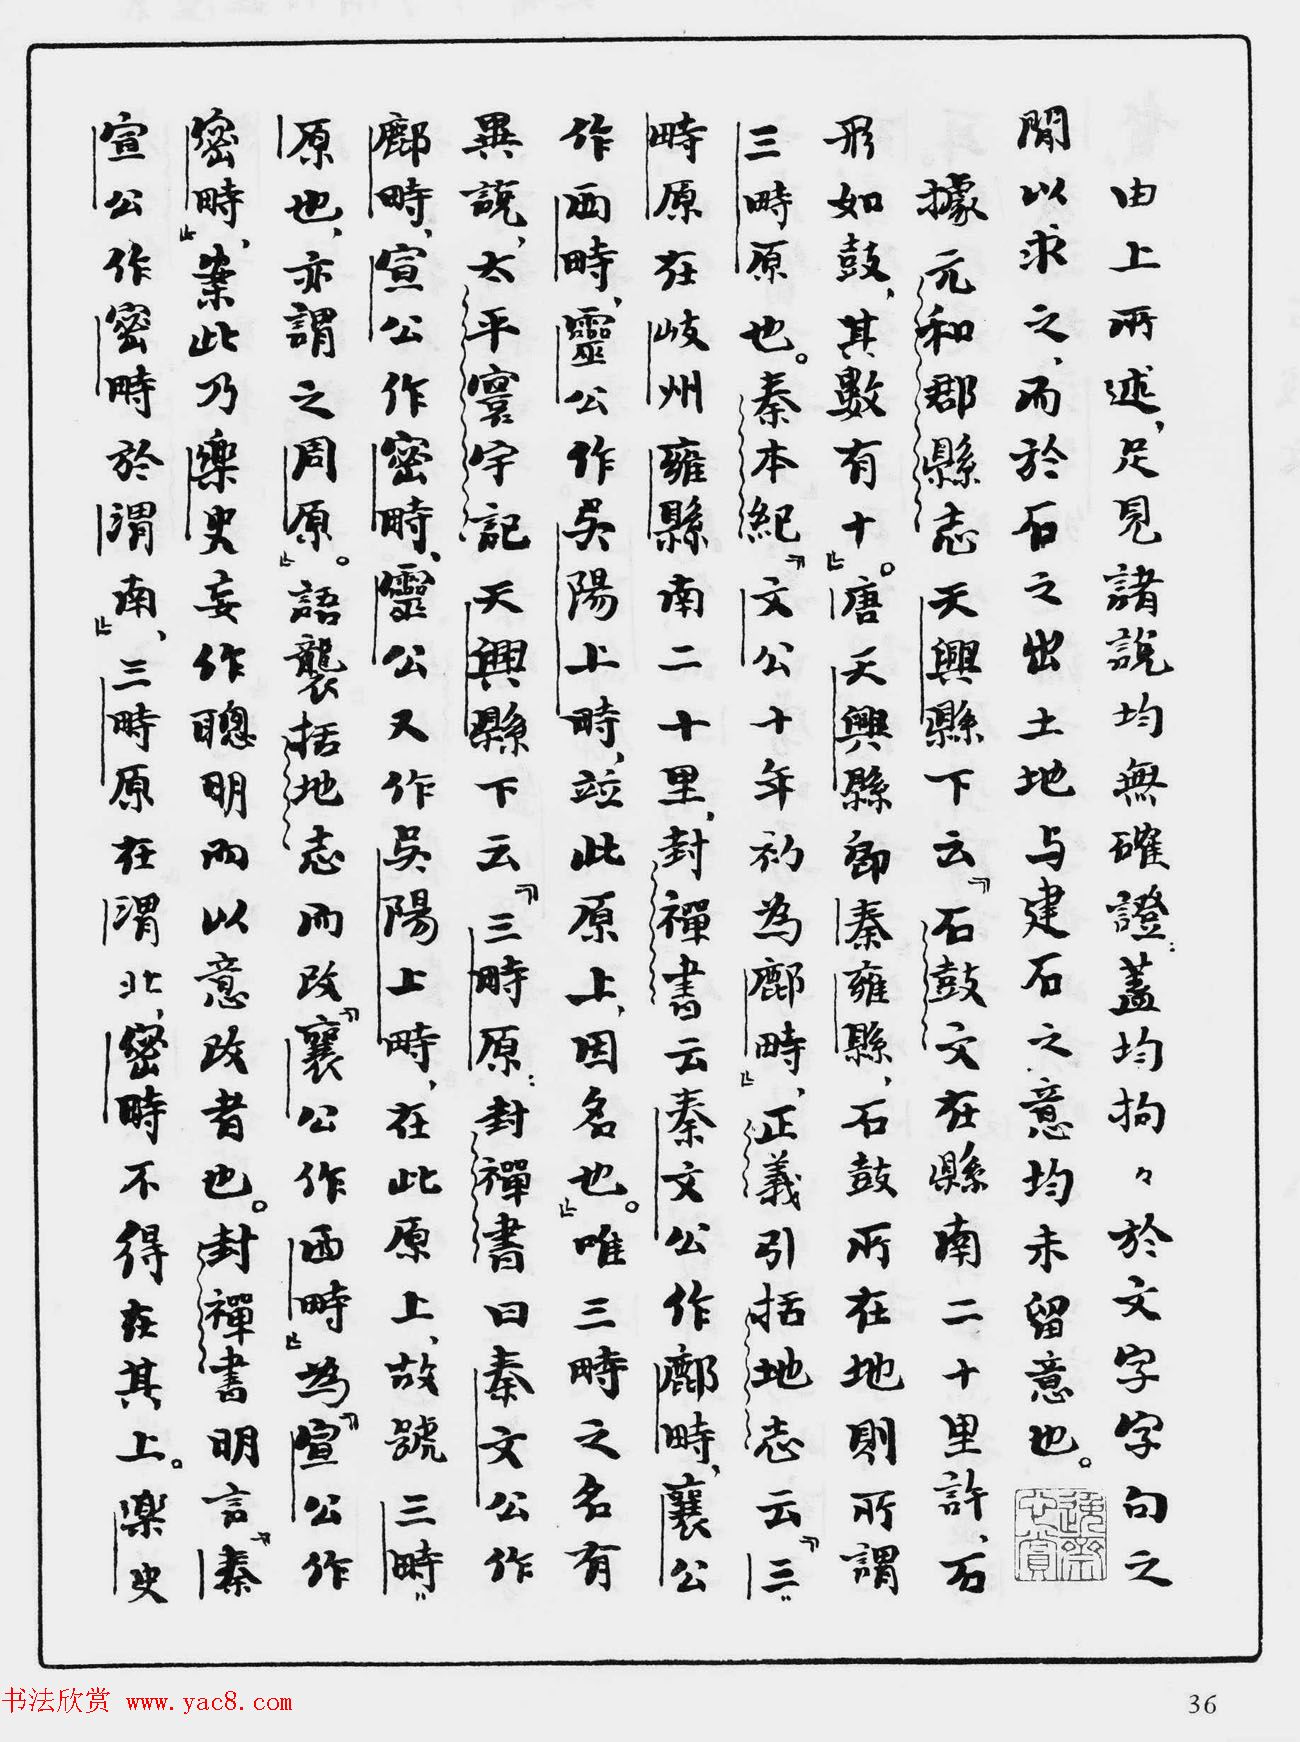 由上所述，足見諸說均無確證：蓋均拘々於文字字句之
間以求之，而於石之出土地与建石之意均未留意也。
據元和郡縣志天興縣下云『石鼓文在縣南二十里許，石
形如鼓，其數有十』。唐天興縣即秦雍縣，石鼓所在地則所謂
三畤原也。秦本紀『文公十年初為鄜畤』，正義引括地志云『三
畤原在岐州雍縣南二十里，封禪書云秦文公作鄜畤，襄公
作西畤，靈公作吳陽上畤，竝此原上，因名也』。唯三畤之名有
異說，太平寰宇記天興縣下云『三畤原：封禪書曰秦文公作
鄜畤，宣公作密畤，靈公又作吳陽上畤，在此原上，故號三畤
原也，亦謂之周原』。語襲括地志而改『襄公作西畤』為『宣公作
密畤』，案此乃樂史妄作聰明而以意改者也。封禪書明言『秦
宣公作密畤於渭南』，三畤原在渭北，密畤不得在其上。樂史
书法欣赏 www.yac8.com
36